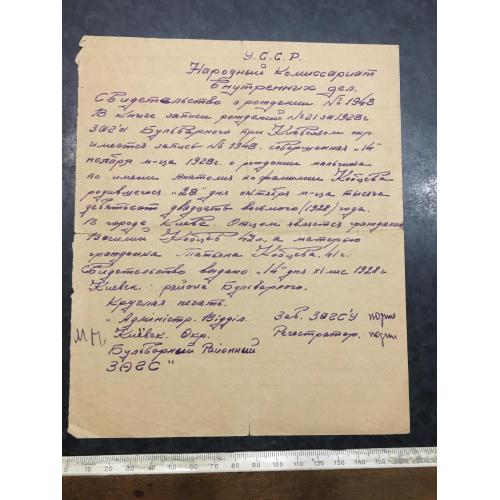 У.С.С.Р.
Народный Комиссариат
Внутренних дел.
Свидетельство о рождении № 1948
В книге записи рождений № 21 за 1928г
ЗАГС'а Бульварного при Киевском окр.
имеется запись № 1948. совершенная „14"
ноября м-ца 1928г. о рождении мальчика
по имени Анатолия по фамилии Кобцева
родившегося „28" дня октября м-ца тысяча
девятьсот двадцать восьмого (1928) года.
В городе Киеве Отцом является гражданин
Василий Кобцев 42л. а матерью
гражданка Татьяна Кобцева. 41г.
Свидетельство выдано „14" дня XI мес 1928г
Киевск. района Бульварного.
Круглая печать.
„Адміністр. Відділ. Зав. ЗАГС'У подпис
М П. Киівск. Окр. Регистратор. подпис
Бульварный Районный
ЗАГС"
0 10 20 30 40 50 60 70 80 90 100 110 120 130 140 150 160 170